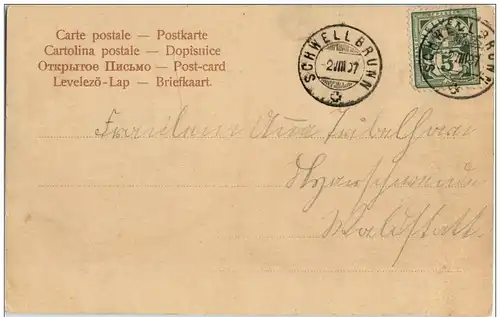 Carte postale — Postkarte
Cartolina postale — Dopisnice
Открытое Письмо — Post-card
Levelező-Lap — Briefkaart.
SCHWELLBRUNN
-2.VIII.07
SCHWELLBRUNN
5
Fräulein
Waldstatt